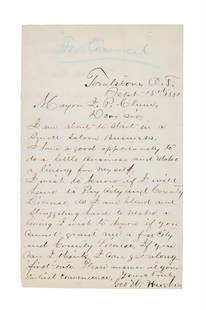 For Council
Tombstone A.T.
Sept 15th 1881
Mayor J. P. Clum,
Dear Sir,
I am about to start in a
Small Saloon Business.
I have a good opportunity to
do a little Business and Make
a living for myself.
I wish to know if I will
have to Pay City and County
License As I am blind and
Struggling hard to make a
living I wish to know if you
Cannot grant me a free City
and County License, If you
can I think I can get along
first rate. Please answer at your
Earliest Convenience,
Yours truly
Geo W.